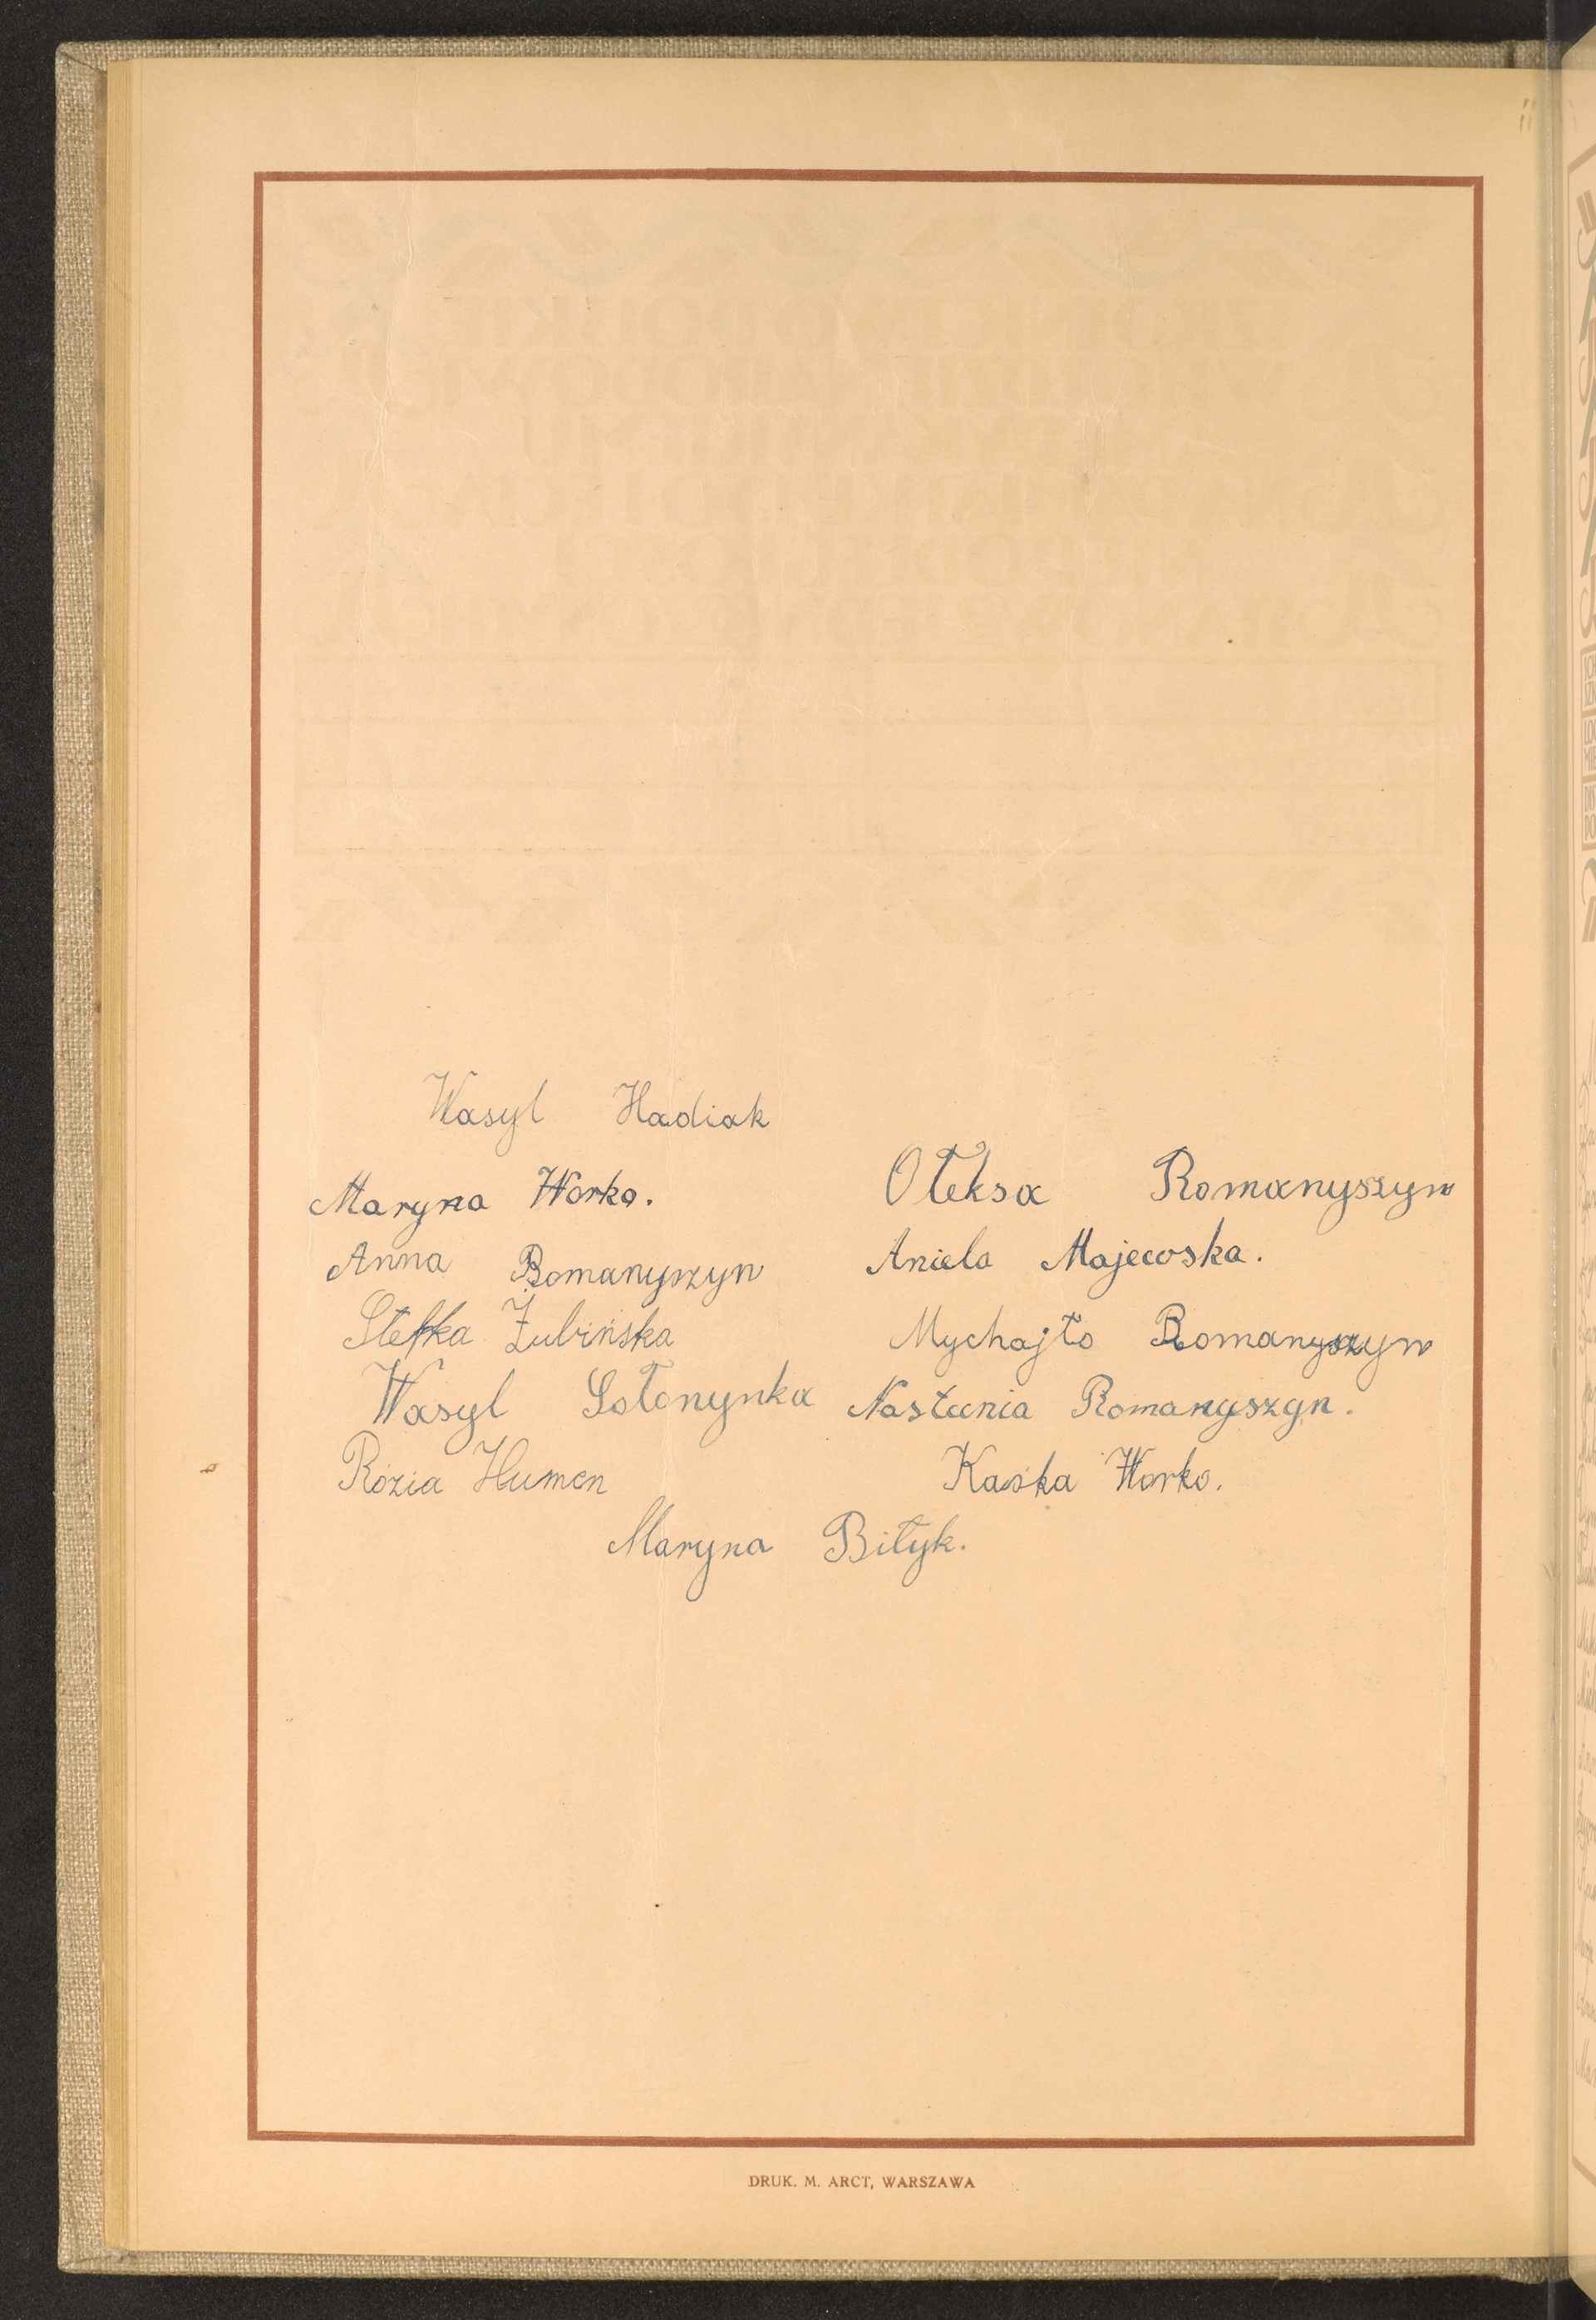 Wasyl Hadiak
Maryna Worko.
Ołeksa Romanyszyn
Anna Romanyszyn
Aniela Majewska.
Stefka Żubińska
Mychajło Romanyszyn
Wasyl Sołonynka
Nastunia Romanyszyn.
Rózia Humen
Kaśka Worko.
Maryna Biłyk.
DRUK. M. ARCT, WARSZAWA